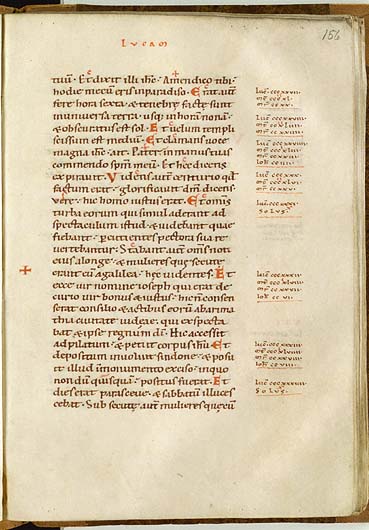 156
LUCAM
tuū. Et dixit illi ihc̄. Amen dico tibi
hodie mecū eris in paradiso. Erat autē
fere hora sexta. & tenebrę factę sunt
in universa terra. usq; in horā nonā.
& obscuratus est sol. Et velum templi
scissum est mediū. Et clamans voce
magna ihc̄ ait. Pater. in manus tuas
commendo sp̄m meū. Et hęc dicens
expiravit. Videns autē centurio qd̄
factum erat. glorificavit dn̄m dicens.
vere. hic homo iustus erat. Et omis
turba eorum qui simul aderant ad
spectaculum istud. & videbant quae
fiebant. percutientes pectora sua re
vertebantur. Stabant autē om̄s noti
eius a longe. & mulieres quę secutę
erant eū a galilea. hęc videntes. Et
ecce vir nomine ioseph qui erat de
curio vir bonus & iustus. hic n̄ consen
serat consilio & actibus eorū. ab arima
thia civitate iudeae. qui expecta
bat & ipse regnum dī. Hic accessit
ad pilatum. & petiit corpus ihū. Et
depositum involvit sindone. & posu
it illud in monumento exciso. in quo
non dū quisquā positus fuerat. Et
dies erat parasceve. & sabbatū illuces
cebat. Subsecutę autē mulieres quę cū
SOLUS.
SOLUS.